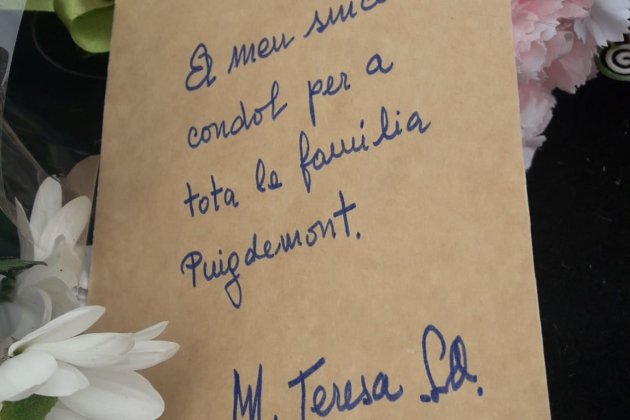 El meu since
condol per a
tota la família
Puigdemont.
M. Teresa Sd.